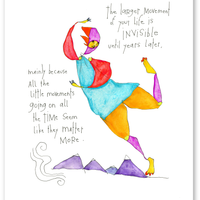 The longer movement
of your life is
INVISIBLE
until years later.
mainly because
all the
little movements
going on all
the TIME seem
like they matter
MORE.